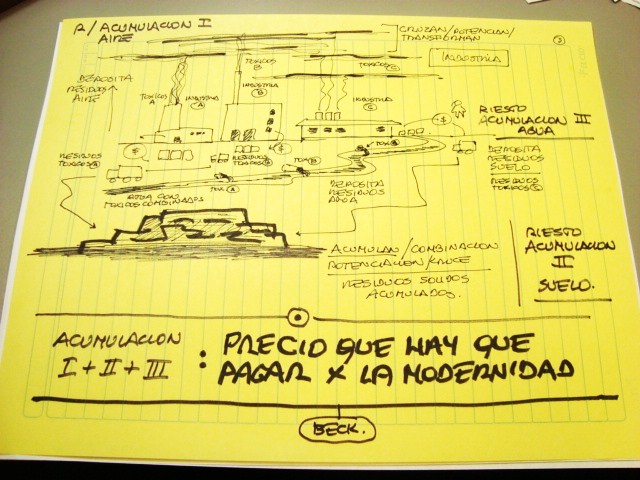 R/ACUMULACION I
AIRE
CRUZAN/POTENCIAN/
TRANSFORMAN
INDUSTRIA
DEPOSITA
RESIDUOS
AIRE
TOXICOS
A
INDUSTRIA
A
TOXICOS
B
INDUSTRIA
B
TOXICOS C
INDUSTRIA
C
RIESGO
ACUMULACION III
AGUA
RESIDUOS
TOXICOS A
RESIDUOS
TOXICOS B
TOX. A
TOX B
DEPOSITA
RESIDUOS
SUELO
RESIDUOS
TOXICOS C
AGUA CON
TOXICOS COMBINADOS
DEPOSITA
RESIDUOS
AGUA
ACUMULAN/COMBINACION
POTENCIACION/CRUCE
RESIDUOS SOLIDOS
ACUMULADOS.
RIESGO
ACUMULACION
II
SUELO.
ACUMULACION
I + II + III
: PRECIO QUE HAY QUE
PAGAR X LA MODERNIDAD
BECK.